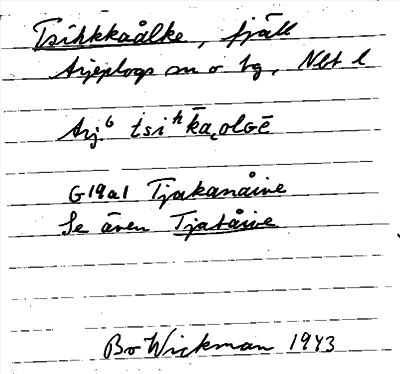 Tsihkkaålke, fjäll
Arjeplogs sn o tg, Nbt l
Arj.ᴳ tsiʰk̄a˛olGē
G19a1 Tjakanåive
Se även Tjatåive
Bo Wickman 1943